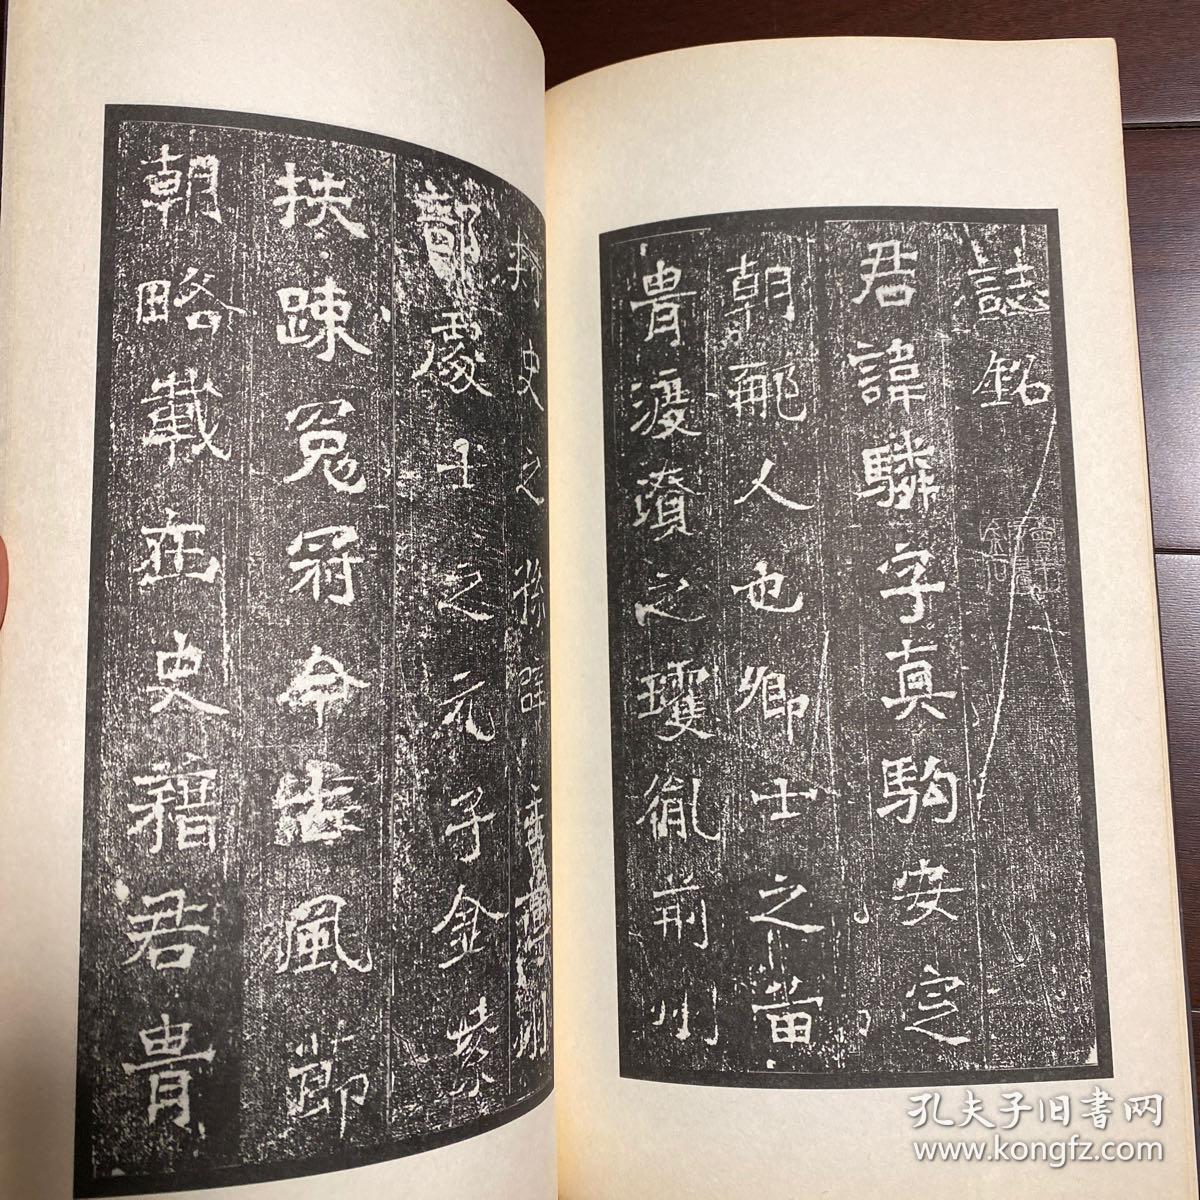 誌銘
君諱驎字真駒安定
朝那人也卿士之苗
胄漢瓚之瓊胤前州
史之孫辟
部處士之元子金紫
扶踈冕冠命世風節
朝略載在史籍君胄
孔夫子旧书网
www.kongfz.com